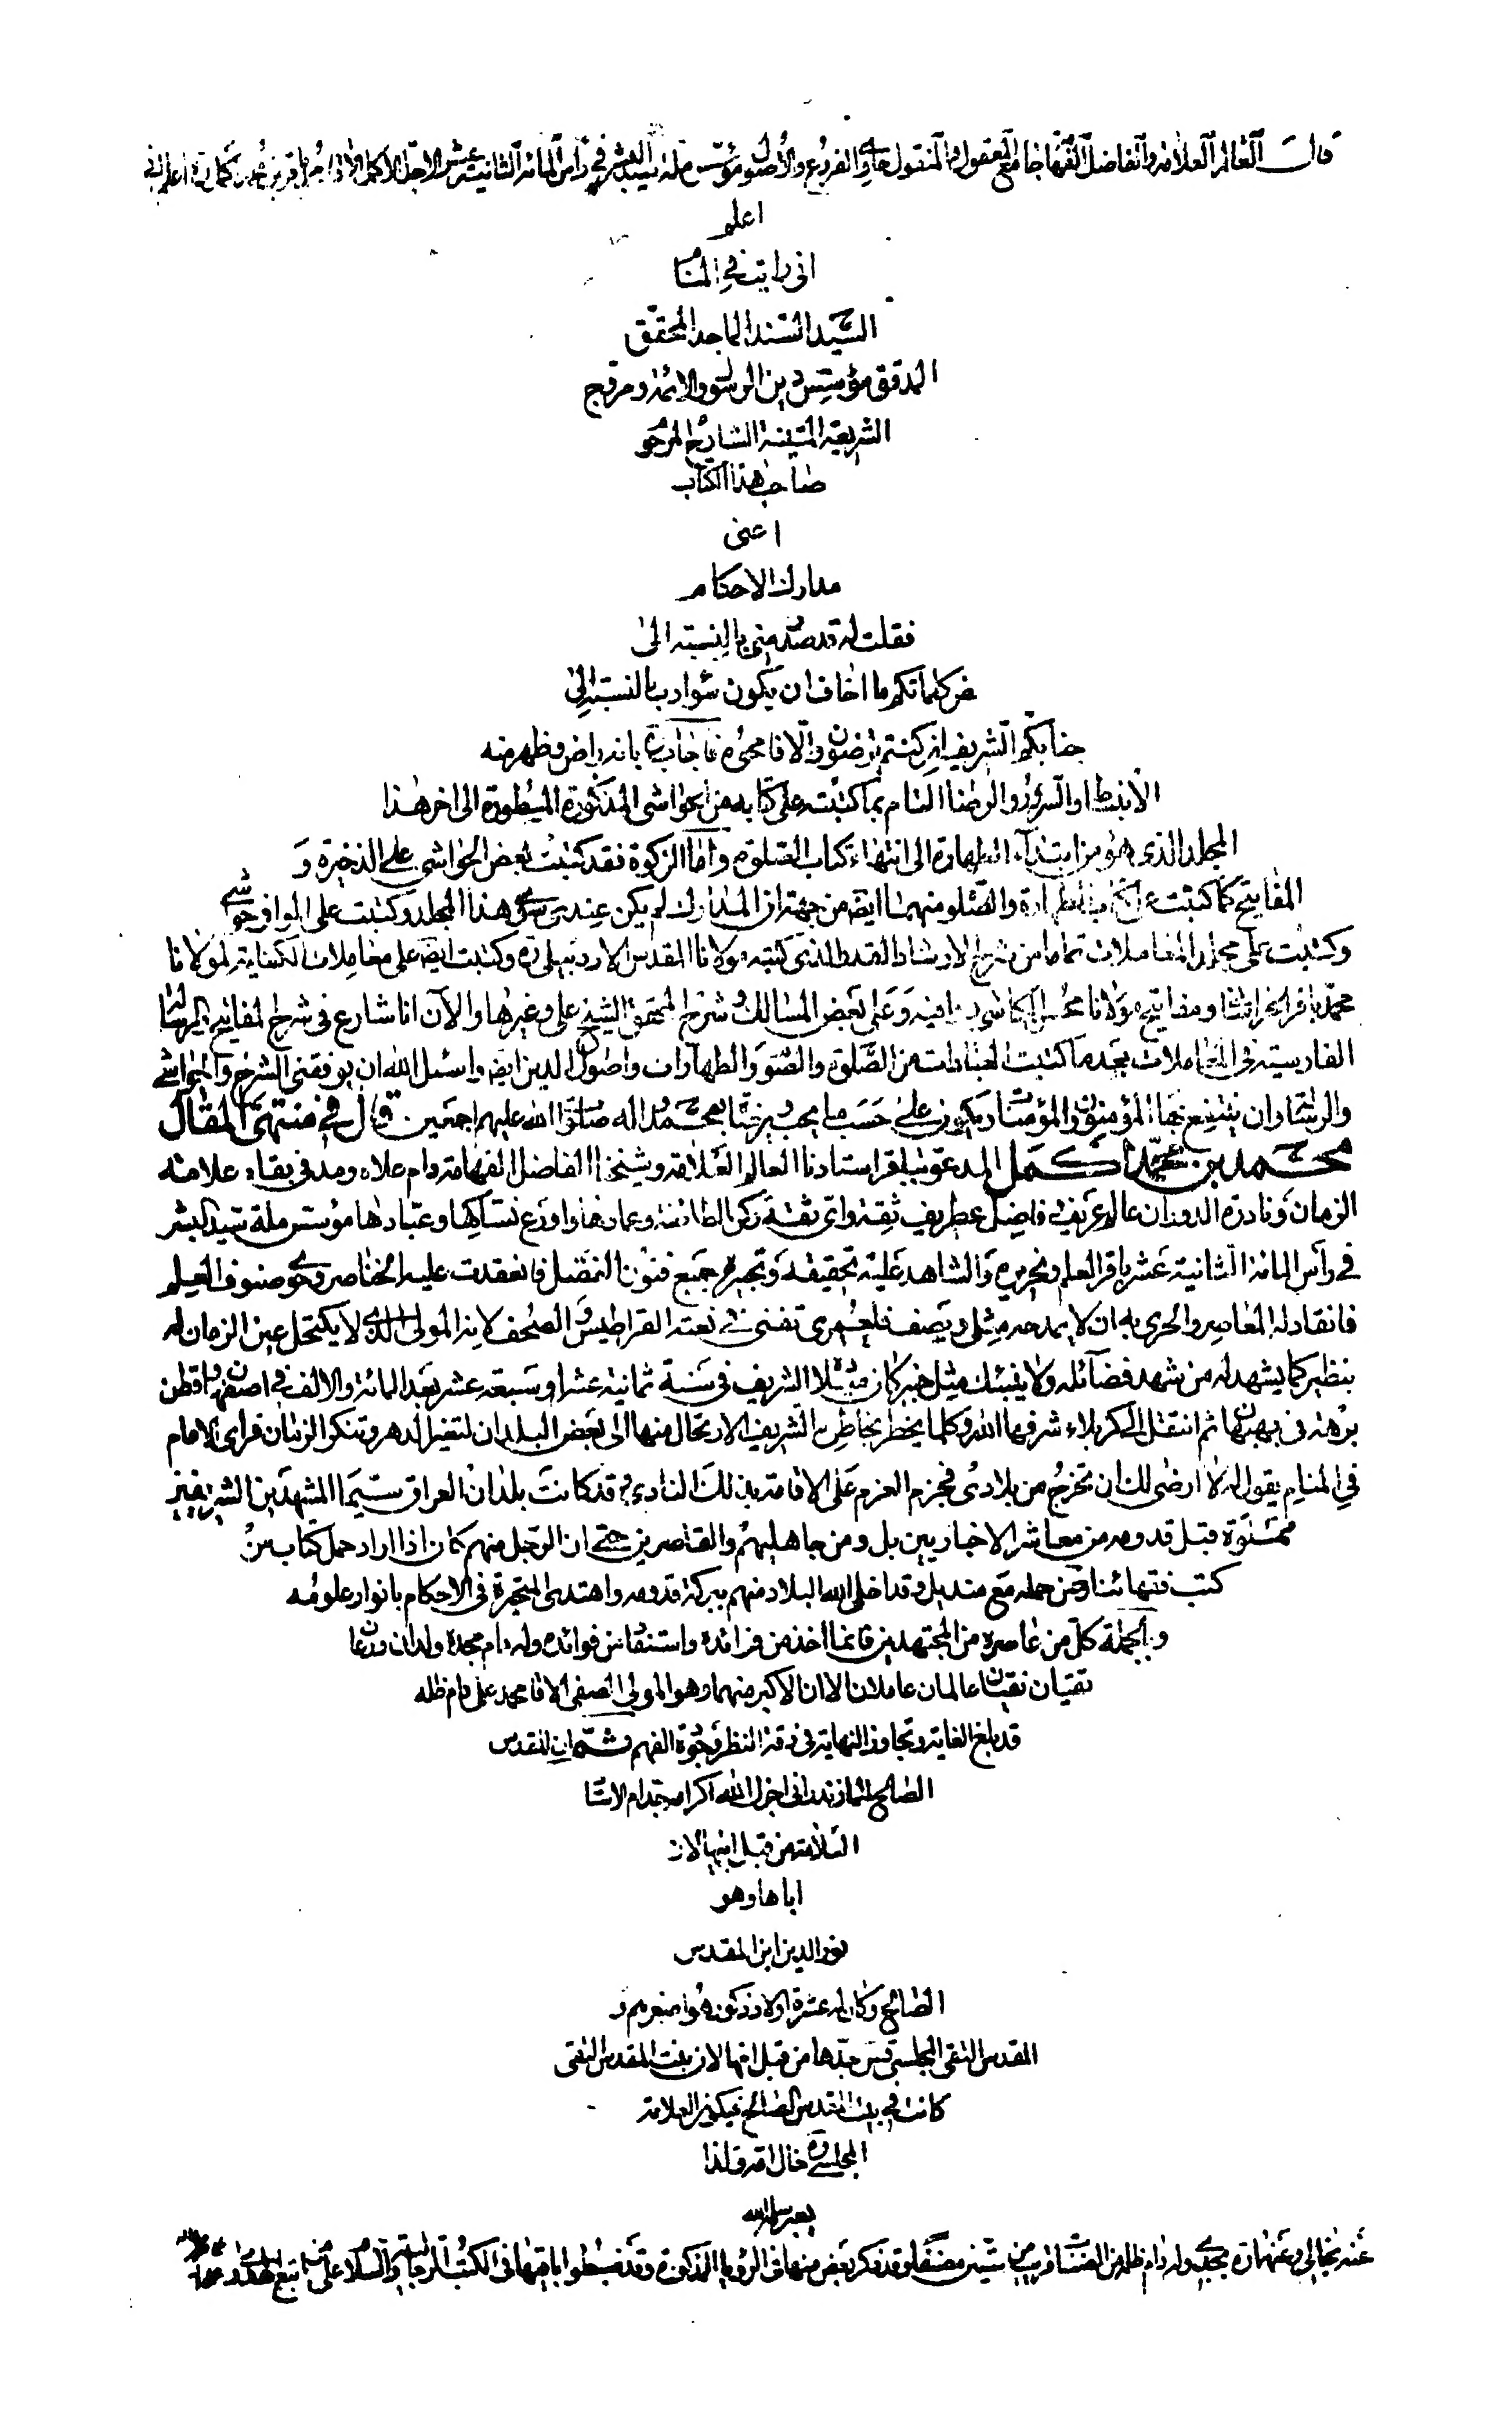 قال العالم العلامة والفاضل الفهامة جامع المعقول والمنقول حاوي الفروع والأصول مؤسس ملة سيد البشر في رأس المائة الثانية عشر الاجل الاكمل
اعلم
انى رايت في المنام
السيد السند الماجد المحقق
المدقق مؤسس دين الرسول والائمة ومروج
الشريعة المتينة الشارح المرحوم
صاحب هذا الكتاب
اعنى
مدارك الاحكام
فقلت له قد صدر منى بالنسبة الى
كلماتكم ما اخاف ان يكون سوء ادب بالنسبة الى
جنابكم الشريف ان كنتم ترضون والا فامحوه فاجاب بانه راض وظهر منه
الانبساط والسرور والرضا التام بما كتبت على كتابه من الحواشى المذكورة المسطورة الى اخر هذا
المجلد الذى هو من ابتداء الطهارة الى انتهاء كتاب الصلوة واما الزكوة فقد كتبت بعض الحواشى على الذخيرة و
المفاتيح كما كتبت على كتاب الطهارة والصلوة منهما ايضا من جهة ان المدارك لم يكن عندى سوى هذا المجلد وكتبت على الوافى حواشى
وكتبت على مجلد المعاملات تماما من شرح الارشاد الذى كتبه مولانا المقدس الاردبيلى ره وكتبت ايضا على معاملات الكفاية لمولانا
محمد باقر الخراسانى ومفاتيح مولانا محسن الكاشى وعلى بعض المسالك وشرح المحقق الشيخ على وغيرها والآن انا شارع فى شرح المفاتيح والرسالة
الفارسية فى المعاملات بعد ما كتبت العبادات من الصلوة والصوم والطهارات واصول الدين ايضا واسئل الله ان يوفقنى الشرح والحواشى
والرسالة وان ينتفع بها المؤمنون والمؤمنات ويكون على حسب ما يحب ويرضى بمحمد وآله صلوات الله عليهم اجمعين قال في منتهى المقال
محمد بن محمد اكمل المدعو بباقر استادنا العالم العلامة وشيخنا الفاضل الفهامة دام علاه ومد فى بقاه علامة
الزمان ونادرة الدوران عالم عريف فاضل غطريف ثقة واى ثقة ركن الطائفة وعمادها واورع نساكها وعبادها مؤسس ملة سيد البشر
في رأس المائة الثانية عشر باقر العلم ونحريره والشاهد عليه تحقيقه وتحبيره جمع فنون الفضل فانعقدت عليه الخناصر وحوى صنوف العلم
فانقاد له المعاصر والحرى به ان لا يمدحه مثلى ويصف فلعمرى تفنى في نعته القراطيس والصحف لانه المولى الذى لا يكتحل عين الزمان له
بنظير كما يشهد له من شهد فضائله ولا ينبئك مثل خبير كان ميلاده الشريف فى سنة ثمانية عشر او سبعة عشر بعد المائة والالف في اصفهان وقطن
برهة فى بهبهان ثم انتقل الى كربلاء شرفها الله وكلما يخطر بخاطره الشريف الارتحال منها الى بعض البلدان لتغير الدهر وتنكر الزمان فراى الامام
في المنام يقول له لا ارضى لك ان تخرج من بلادى فجزم العزم على الاقامة بذلك النادى وقد كانت بلدان العراق سيما المشهدين الشريفين
مملوة قبل قدومه من معاشر الاخباريين بل ومن جاهليهم والقاصرين حتى ان الرجل منهم كان اذا اراد حمل كتاب من
كتب فقهائنا رض حمله مع منديل وقد اخلى الله البلاد منهم ببركة قدومه واهتدى المتحيرة فى الاحكام بانوار علومه
وبالجملة كل من عاصره من المجتهدين فانما اخذ من فوائده واستفاد من فوائده وله دام مجده ولدان ورعان
تقيان نقيان عالمان عاملان الا ان الاكبر منهما وهو المولى الصفى الاقا محمد على دام ظله
قد بلغ الغاية وتجاوز النهاية فى دقة النظر وجودة الفهم ثم ان المقدس
الصالح المازندرانى اجزل الله اكرامه جد ام الاستاد
العلامة من قبل ابيها لان
اباها وهو
نور الدين ابن المقدس
الصالح وكان له عشرة اولاد ذكور هو اصغرهم و
المقدس التقى المجلسى قدس جدها من قبل امها لان بنت المقدس التقى
كانت في بيت المقدس الصالح فيكون العلامة
المجلسى ره خال امه ولذا
يعبر سلمه الله
عنه بخالى وعنهما بجدى وله دام ظله من المصنفات قريب من ستين مصنفا وقد ذكر بعض منها فى الرؤيا المذكورة وقد ضبطوا باقيها فى الكتب الرجالية والسلام على من اتبع الهدى